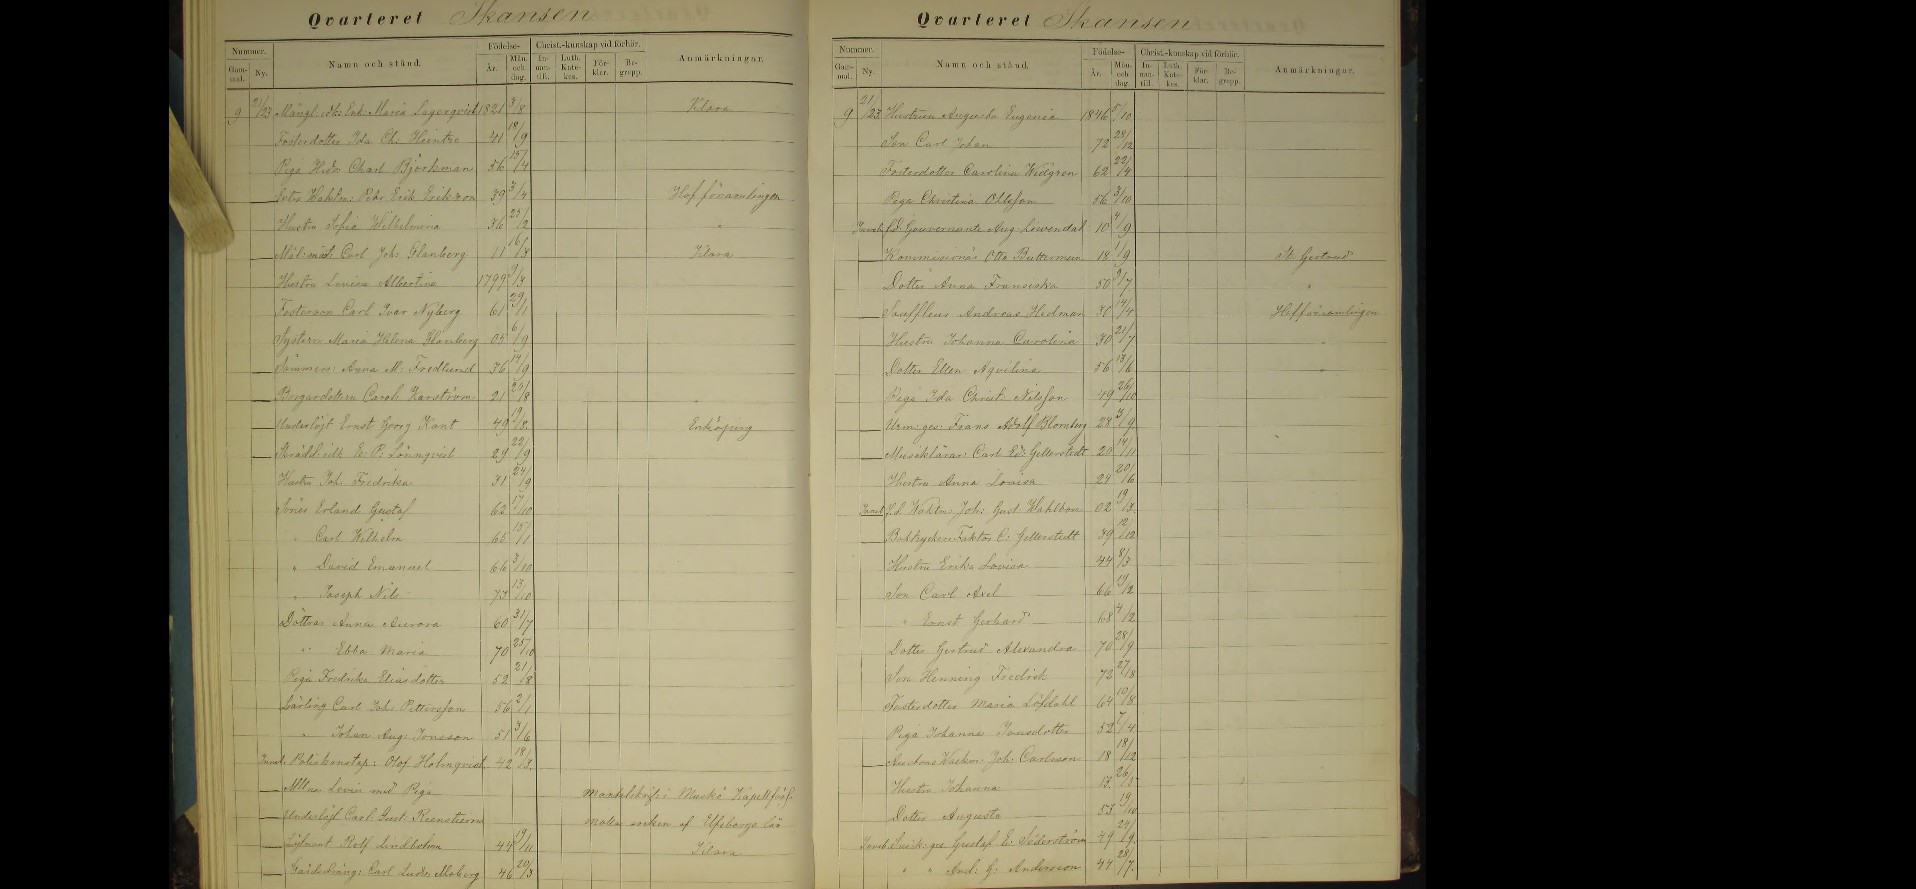 Qvarteret Skansen
Nummer. Namn och stånd. Födelse- Christ.-kunskap vid förhör. Anmärkningar.
Gammal. Ny. År. Mån. och dag. Innantill. Luth. Katekes. Förklar. Begrepp.
9 21/23 Mångl: Enk: Maria Lagerqvist 1821 3/8 Klara
Fosterdotter Ida Ch: Heintze 41 18/9
Piga Hed: Charl Björkman 56 15/4
Erik Erikson 39 3/4 Hofförsamlingen
Hustru Sofia Wilhelmina 36 23/2 "
Carl Joh: Glanberg 11 16/3 Klara
Hustru Lovisa Albertina 1799 9/3
Fosterson Carl Ivar Nyberg 61 29/1
Systern Maria Helena Glanberg 05 6/9
Anna M: Fredlund 36 14/9
Borgardottern Carol: 21 20/8
Underlöjt Ernst Georg Kant 49 19/8 Enköping
E: P: Lönnqvist 29 22/9
Hustru Joh: Fredrika 31 24/9
Söner Erland Gustaf 62 17/10
" Carl Wilhelm 65 15/1
" David Emanuel 66 3/10
" Joseph Nils 73 13/10
Döttrar Anna Aurora 60 31/7
" Ebba Maria 70 25/10
Piga Fredrika Eliasdotter 52 21/8
Lärling Carl Joh: Pettersson 56 2/1
" Johan Aug: Jonsson 51 3/6
Poliskonstap: Olof Holmqvist 42 18/3
Levin med Piga Mantalskrifs i Muskö Kapellförs:
Underlöjt Carl Gust: socken af Elfsborgs län
Löjtnant Rolf Lindbohm 44 19/11 Klara
Gårdsdräng: Carl Ludv: Moberg 46 20/3
Qvarteret Skansen
Nummer. Namn och stånd. Födelse- Christ.-kunskap vid förhör. Anmärkningar.
Gammal. Ny. År. Mån. och dag. Innantill. Luth. Katekes. Förklar. Begrepp.
9 21/23 Hustrun Augusta Eugenia 1846 5/10
Son Carl Johan 72 28/12
Fosterdotter Carolina Widgren 62 22/4
Piga Christina Olsson 56 3/10
f.d. Gouvernante Aug: Löwendal 10 4/9
Kommissionär Otto Butterman 18 1/9 St: Gertrud
Dotter Anna Fransiska 50 9/7 "
Souffleur Andreas Hedman 31 14/4 Hofförsamlingen
Hustru Johanna Carolina 30 21/7 "
Dotter Ellen Aqvilina 56 13/6 "
Piga Ida Christ: Nilsson 49 26/10
Urm: ges: Frans Adolf Blomberg 28 3/9
Musiklärar: Carl Ed: Gellerstedt 20 14/11
Hustru Anna Lovisa 24 20/6
F.d. Joh: Gust Wahlbom 02 19/8
Boktryckeri Faktor C: Gellerstedt 39 12/12
Hustru Erika Lovisa 44 8/3
Son Carl Axel 66 19/12
" Ernst Gerhard 68 4/12
Dotter Gertrud Alexandra 70 28/9
Son Henning Fredrik 72 27/8
Fosterdotter Maria Löfdahl 64 10/8
Piga Johanna Jonsdotter 52 7/4
Joh: Carlsson 18 18/12
Hustru Johanna 13
Dotter Augusta 53 19/10
Gustaf E: Söderström 49 24/9
" " And: G: Andersson 47 28/7